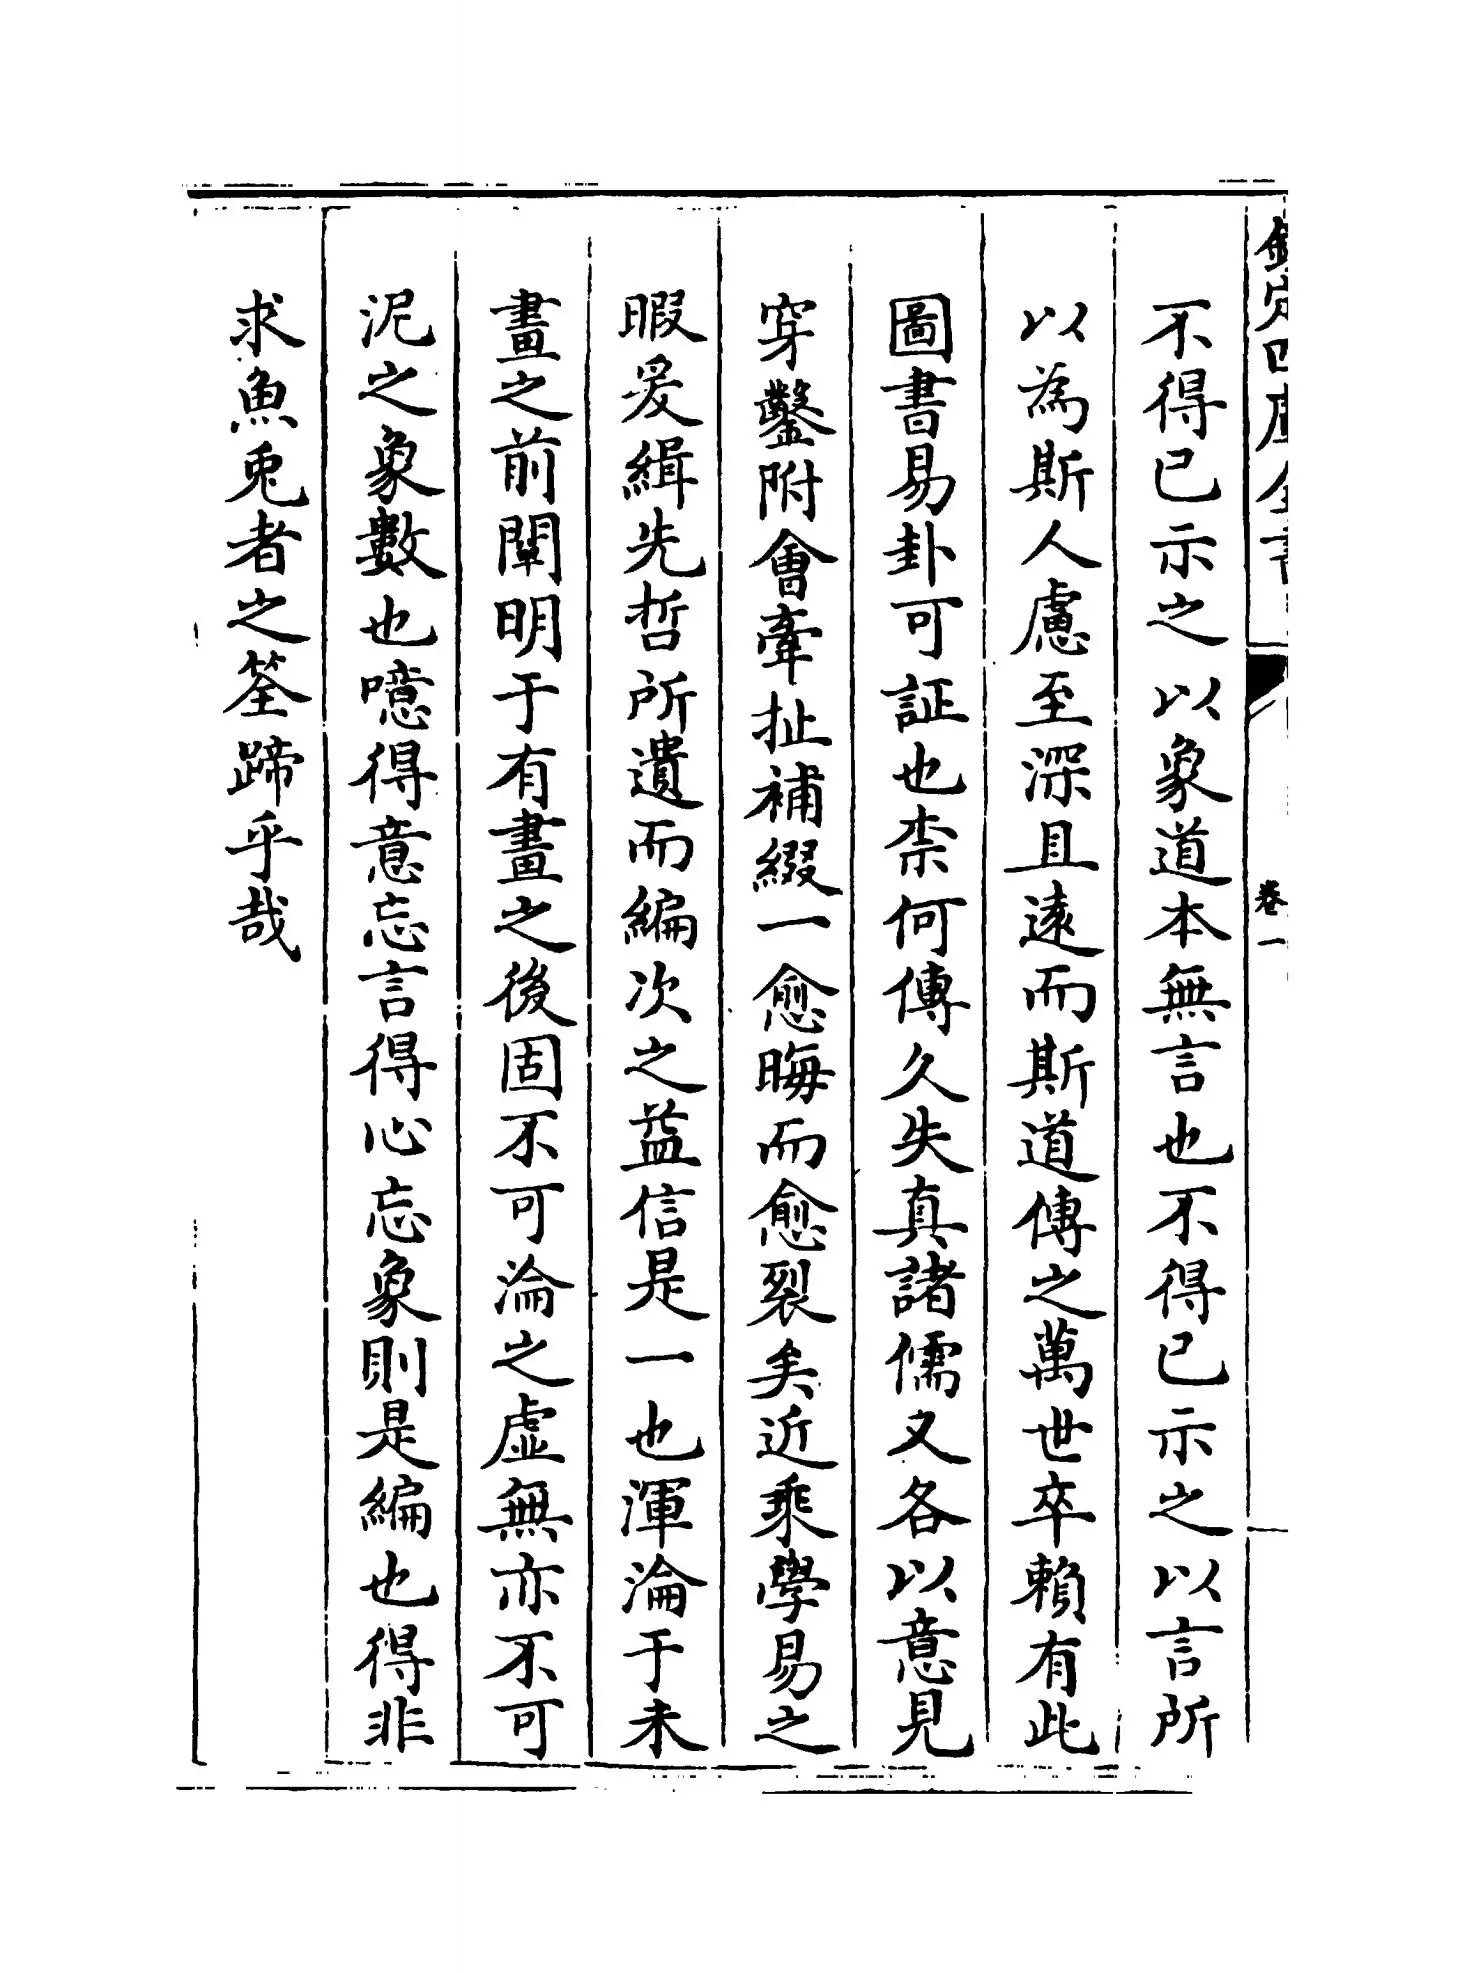 欽定四庫全書
卷一
不得已示之以象道本無言也不得已示之以言所
以為斯人慮至深且遠而斯道傳之萬世卒賴有此
圖書易卦可証也柰何傳久失真諸儒又各以意見
穿鑿附會牽扯補綴一愈晦而愈裂矣近乘學易之
暇爰緝先哲所遺而編次之益信是一也渾淪于未
畫之前闡明于有畫之後固不可淪之虛無亦不可
泥之象數也噫得意忘言得心忘象則是編也得非
求魚兎者之筌蹄乎哉